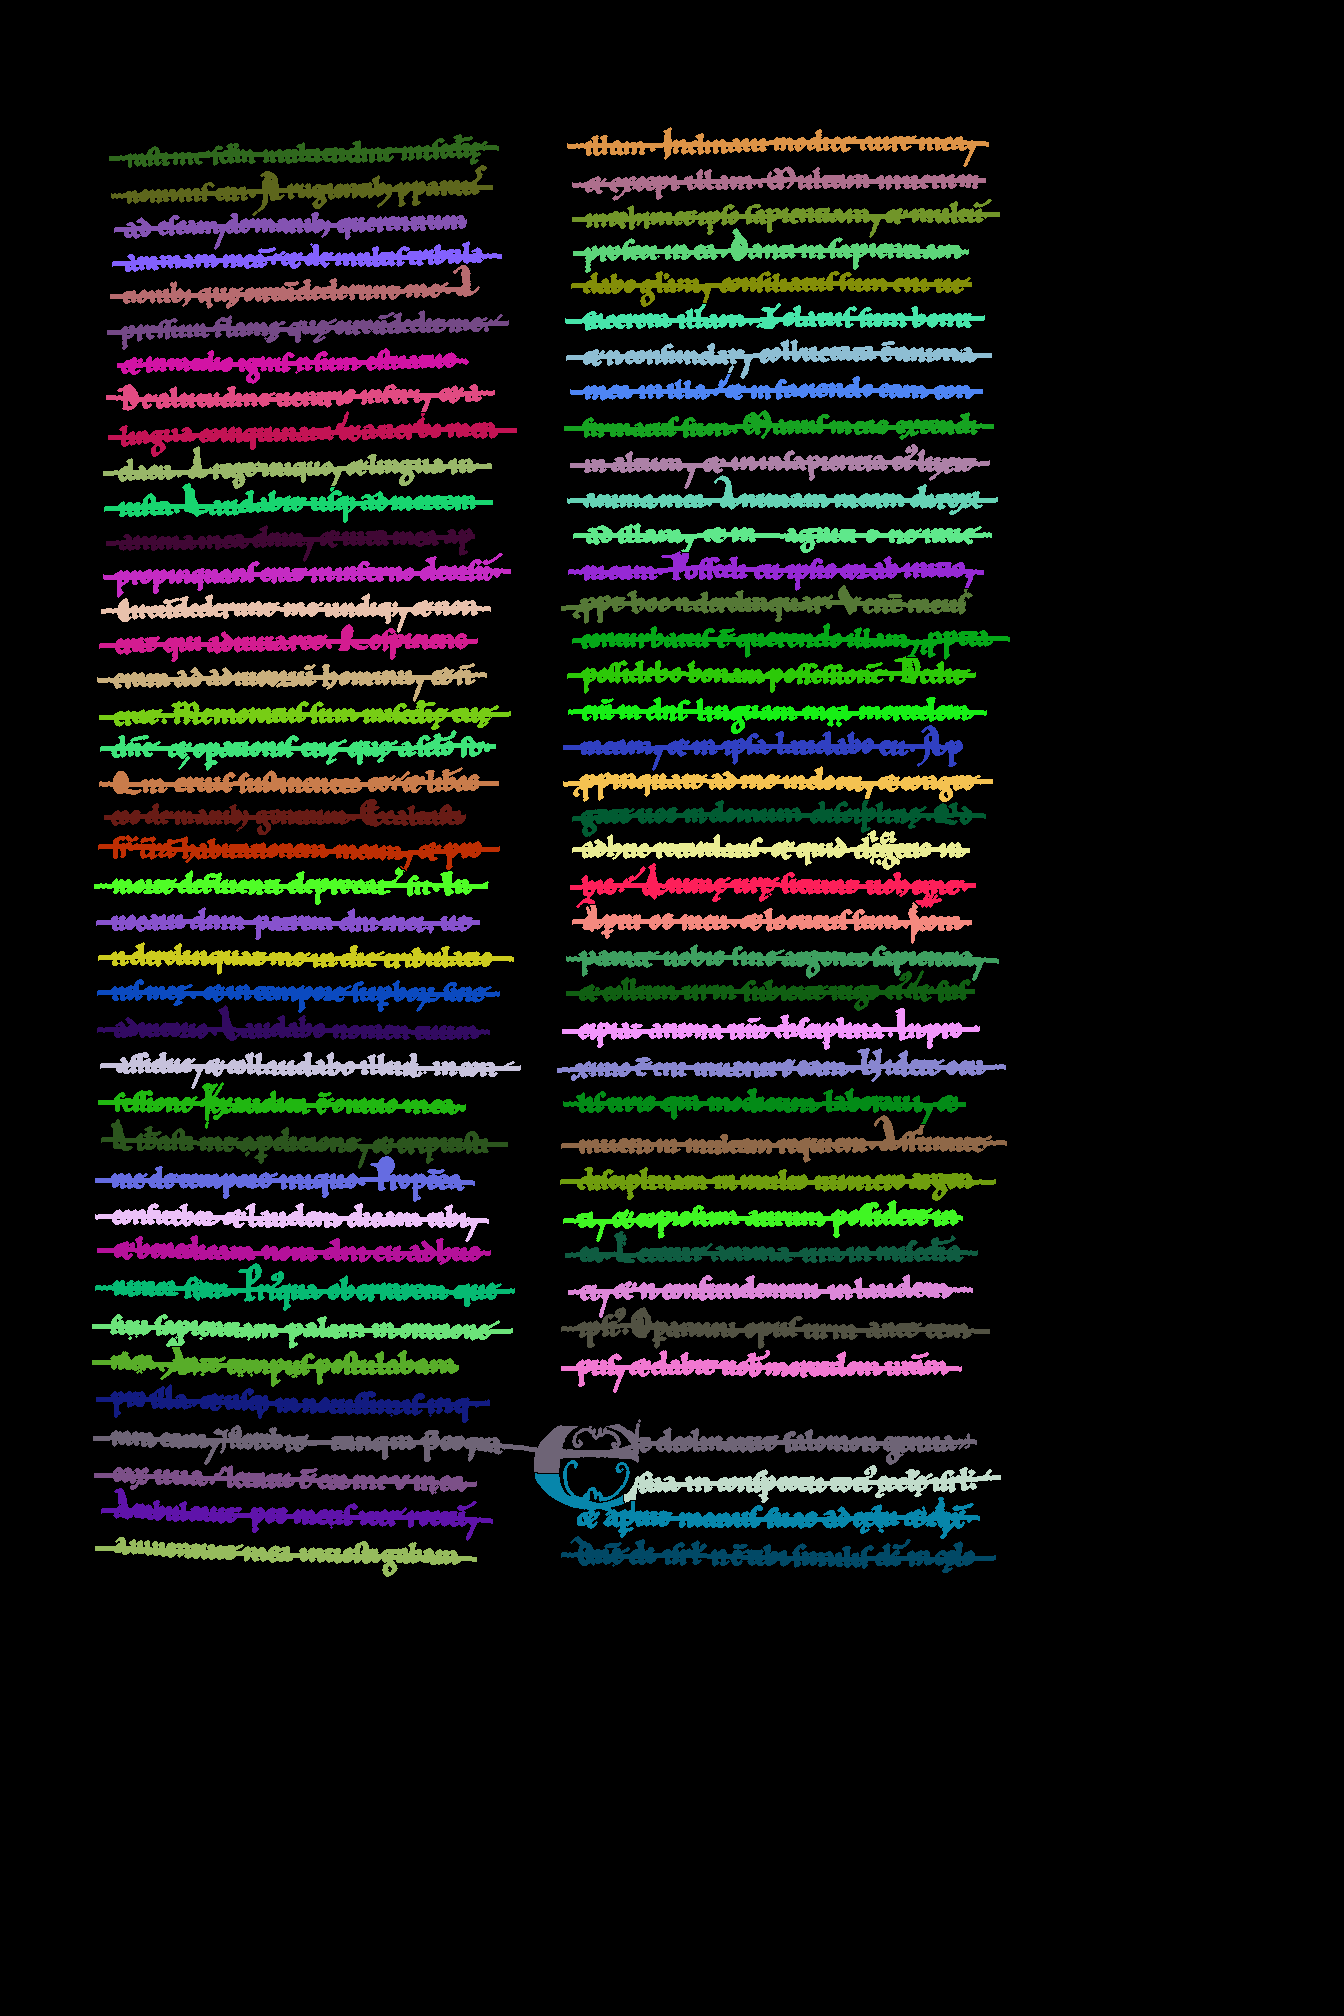 rasti me scdm multitudine miscdie
nominis tui. A rugientib; pparatis
ad escam, de manib; querentium
animam meā & de multis tribula
tionib; que circūdederunt me A
pressura flamme que circūdedit me
& in medio ignis n sum estuatus
De altitudine uentris inferi, & a
lingua coinquinata & a uerbo men
dacii. A rege iniquo, & lingua in
iusta. Laudabit usq; ad mortem
anima mea dnm, & uita mea ap
propinquans erat in inferno deorsū
Circūdederunt me undiq;, & non
erat qui adiuuaret. Respiciens
eram ad adiutoriū hominū, & n̄
erat. Memoratus sum miscdie tue
dn̄e & operationis tue que a sclo st
Qm eruis sustinentes te & libas
eos de manib; gentium Exaltasti
habitationem meam, & pro
morte defluenti deprecat' sū. In
uocaui dnm patrem dni mei, ut
n derelinquat me in die tribulatio
nis mee & in tempore supboꝝ sine
adiutorio Laudabo nomen tuum
assidue, & collaudabo illud in con
fessione Et exaudita ē oratio mea
me de perditione, & eripuisti
me de tempore iniquo. Propt̄ea
confitebor & laudem dicam tibi,
& benedicam nom dni. cū adhuc
iunior sum Priusqua oberrarem que
siui sapientiam palam in oratione
mea. Ante tempus postulabam
pro illa & usq; in nouissimis inq
ram eam, & florebit tanqua p̄coqua
uua. ē cor meū in ea
Ambulauit pes meus iter rectū
a iuuentute mea inuestigabam
illam. Inclinaui modice aurē mea,
& excepi illam. Multam inueni in
me ipso sapientiam, & multū
profeci in ea Danti m sapientiam
dabo gliam, consiliatus sum eni ut
facerem illam. Zelatus sum bonū
& n confundar, colluctata ē anima
mea in illa, & in faciendo eam con
firmatus sum. Manus meas extendi
in altum, & in insapientia ei luxit
anima mea. Animam meam direxi
ad illam, & in agnitione inueni
Possedi cū ipsa cor ab initio,
ppt hoc n derelinquar. Venter meus
conturbatus ē querendo illam, ppterea
possidebo bonam possessionē. Dedit
m dns linguam mercedem
meam, & in ipsa laudabo eū. Ap
ppinquate ad me indocti, & congre
gate uos in domum discipline. Quid
adhuc tardatis & quid dicitis in
anime uestre sitiunt uehementer
Aperui os meū & locutus sum. Com
parate uobis sine argento sapientiam,
& collum urm subicite iugo, & sus
cipiat anima ura disciplina. In pro
ximo ē eni inuenire eam. Videte oculis
qui modicum laboraui, &
inueni m multam requiem. Assumite
disciplinam in multo numero argen
ti, & copiosum aurum possidete in
ea. Letetur anima ura in miscdia
ei, & n confundemini in laude
ipsi'. Operamini opus urm ante tem
pus, & dabit uob mercedem urām
clinauit salomon genua
sua in conspectu
& aperiens manus suas ad celum